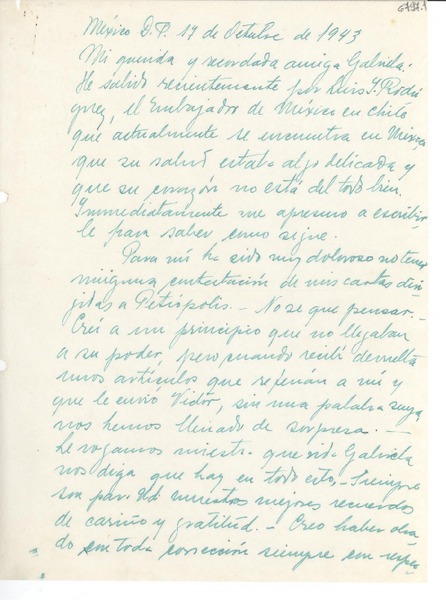 6797.1
México D.F. 17 de Octubre de 1943
Mi querida y recordada amiga Gabriela.
He sabido recientemente por Luis I. Rodrí
guez, el Embajador de México en Chile
que actualmente se encuentra en México,
que su salud estaba algo delicada y
que su corazón no está del todo bien.
Inmediatamente me apresuro a escribir
le para saber como sigue.
Para mí ha sido muy doloroso no tener
ninguna contestación de mis cartas diri
gidas a Petrópolis. — No se que pensar. —
Creí a un principio que no llegaban
a su poder, pero cuando recibí devuelta
unos artículos que referían a mí y
que le envió Victor, sin una palabra suya
nos hemos llenado de sorpresa. —
le rogamos nuestra querida Gabriela
nos diga que hay en todo esto. — Siempre
son para Ud nuestros mejores recuerdos
de cariño y gratitud. — Creo haber obra
do con toda corrección siempre con respec